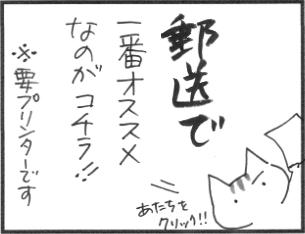 郵送で
一番オススメ
なのがコチラ!!
※要プリンターです
あたちを
クリック!!